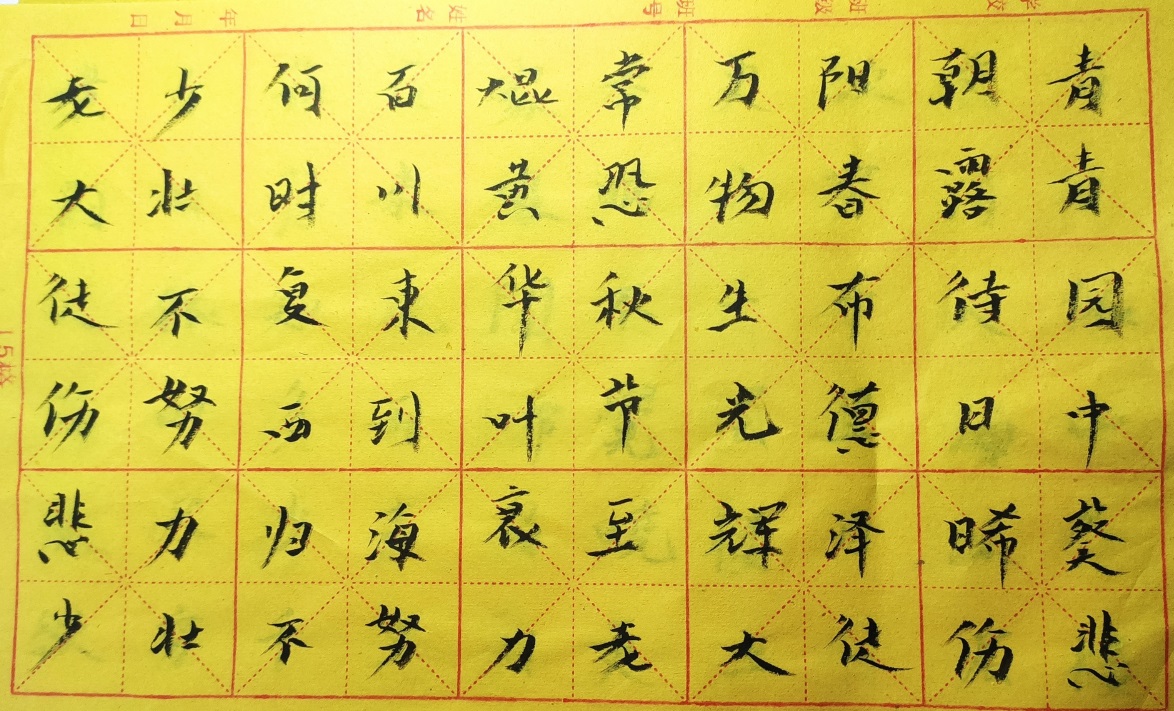 青青园中葵悲
朝露待日晞伤
阳春布德泽徒
万物生光辉大
常恐秋节至老
焜黄华叶衰力
百川东到海努
何时复西归不
少壮不努力壮
老大徒伤悲少
学校
班级
姓名
年月日